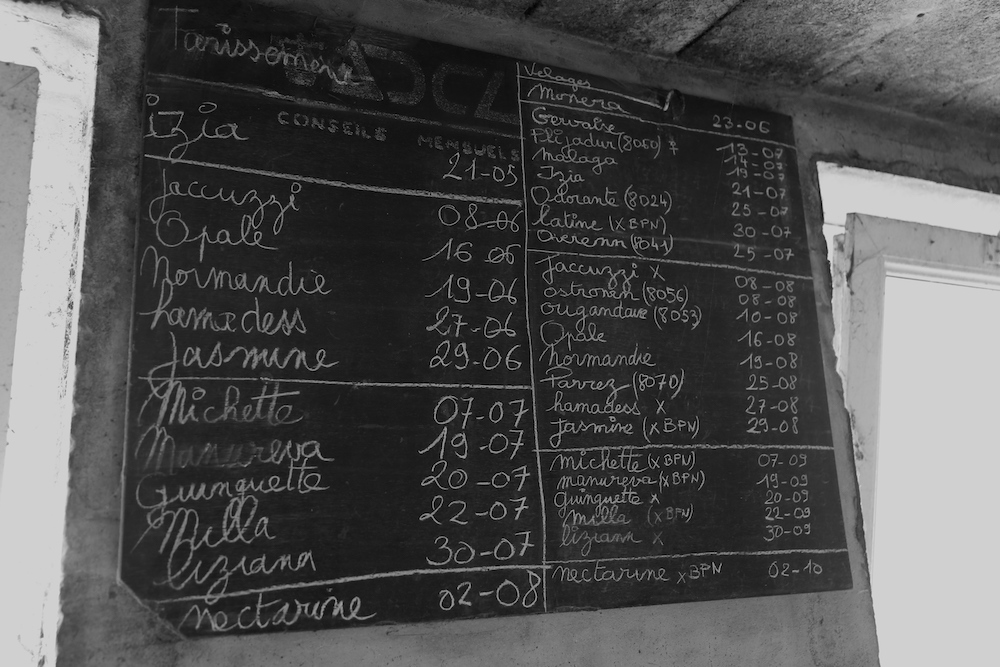 Tarissement
CONSEILS MENSUELS
izia 21-05
Jaccuzzi 08-06
Opale 16-06
Normandie 19-06
hamadess 27-06
Jasmine 29-06
Michette 07-07
Manureva 19-07
Guinguette 20-07
Milla 22-07
liziann 30-07
nectarine 02-08
Velages
Moneria 23-06
Gervaise 13-07
Flijadur (8060) ♀ 14-07
Malaga 19-07
Izia 21-07
Odorante (8024) 25-07
latine (x BPN) 30-07
(8041) 25-07
Jaccuzzi x 08-08
ostronen (8056) 08-08
(8053) 10-08
Opale 16-08
Normandie 19-08
Parrez (8070) 25-08
hamadess x 27-08
Jasmine (x BPN) 29-08
michette (x BPN) 07-09
manureva (x BPN) 19-09
Guinguette x 20-09
Milla (x BPN) 22-09
liziann x 30-09
nectarine x BPN 02-10